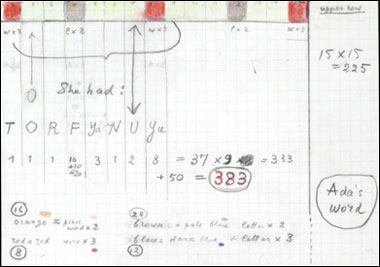 upper row
w×3 l×2 w×3 l×2 w×3
15 × 15
= 225
O
She had:
T O R F Ya N U Yu
1 1 1 10 3 1 2 8 = 37 × 9 = 333
+10
=20
+ 50 = 383
Ada's
word
16
orange = pink
word × 2
24
brown = pale blue letter × 2
red = red word × 3
blue = dark blue = letter × 3
8
12